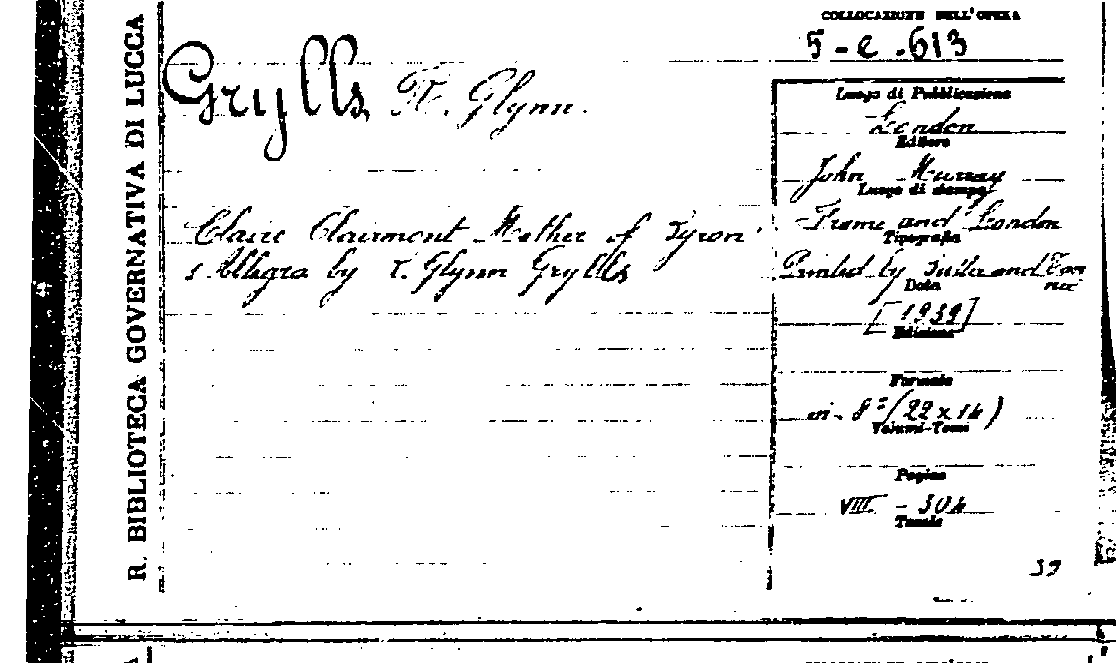 R. BIBLIOTECA GOVERNATIVA DI LUCCA
COLLOCAZIONE DELL'OPERA
5-e-613
Grylls R. Glynn.
Claire Clairmont Mother of Byron'
s Allegra by R. Glynn Grylls
Luogo di Pubblicazione
London
Editore
John Murray
Luogo di stampa
Frome and London
Tipografia
Printed by and
Data
[1939]
Edizione
Formato
in-8° (22x14)
Volumi-Tomi
Pagine
VIII - 304
Tavole
39